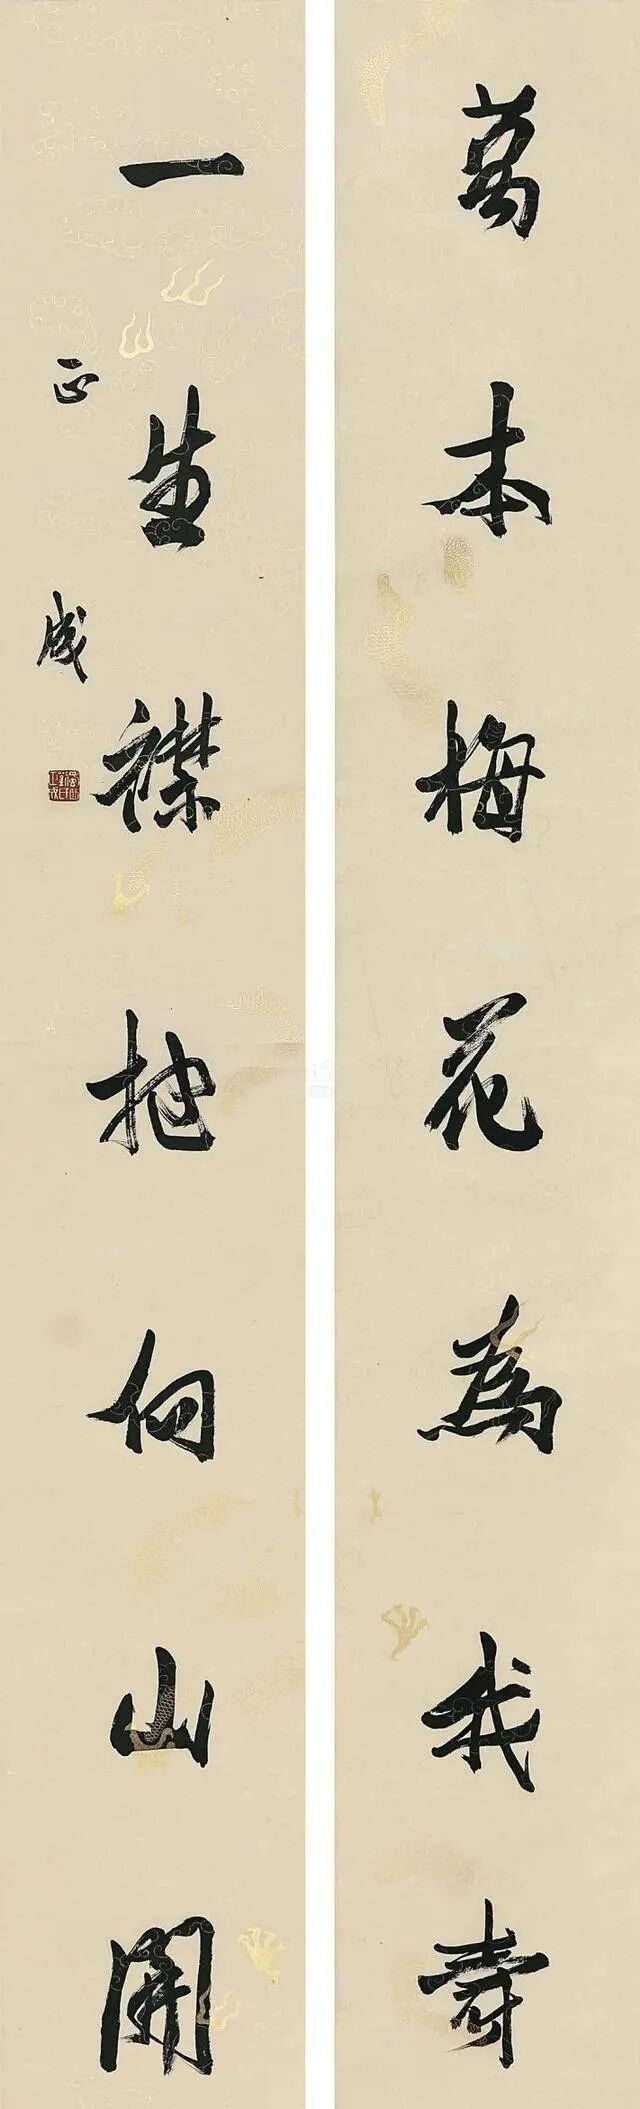 萬本梅花為我壽
一生襟抱向山開
正成